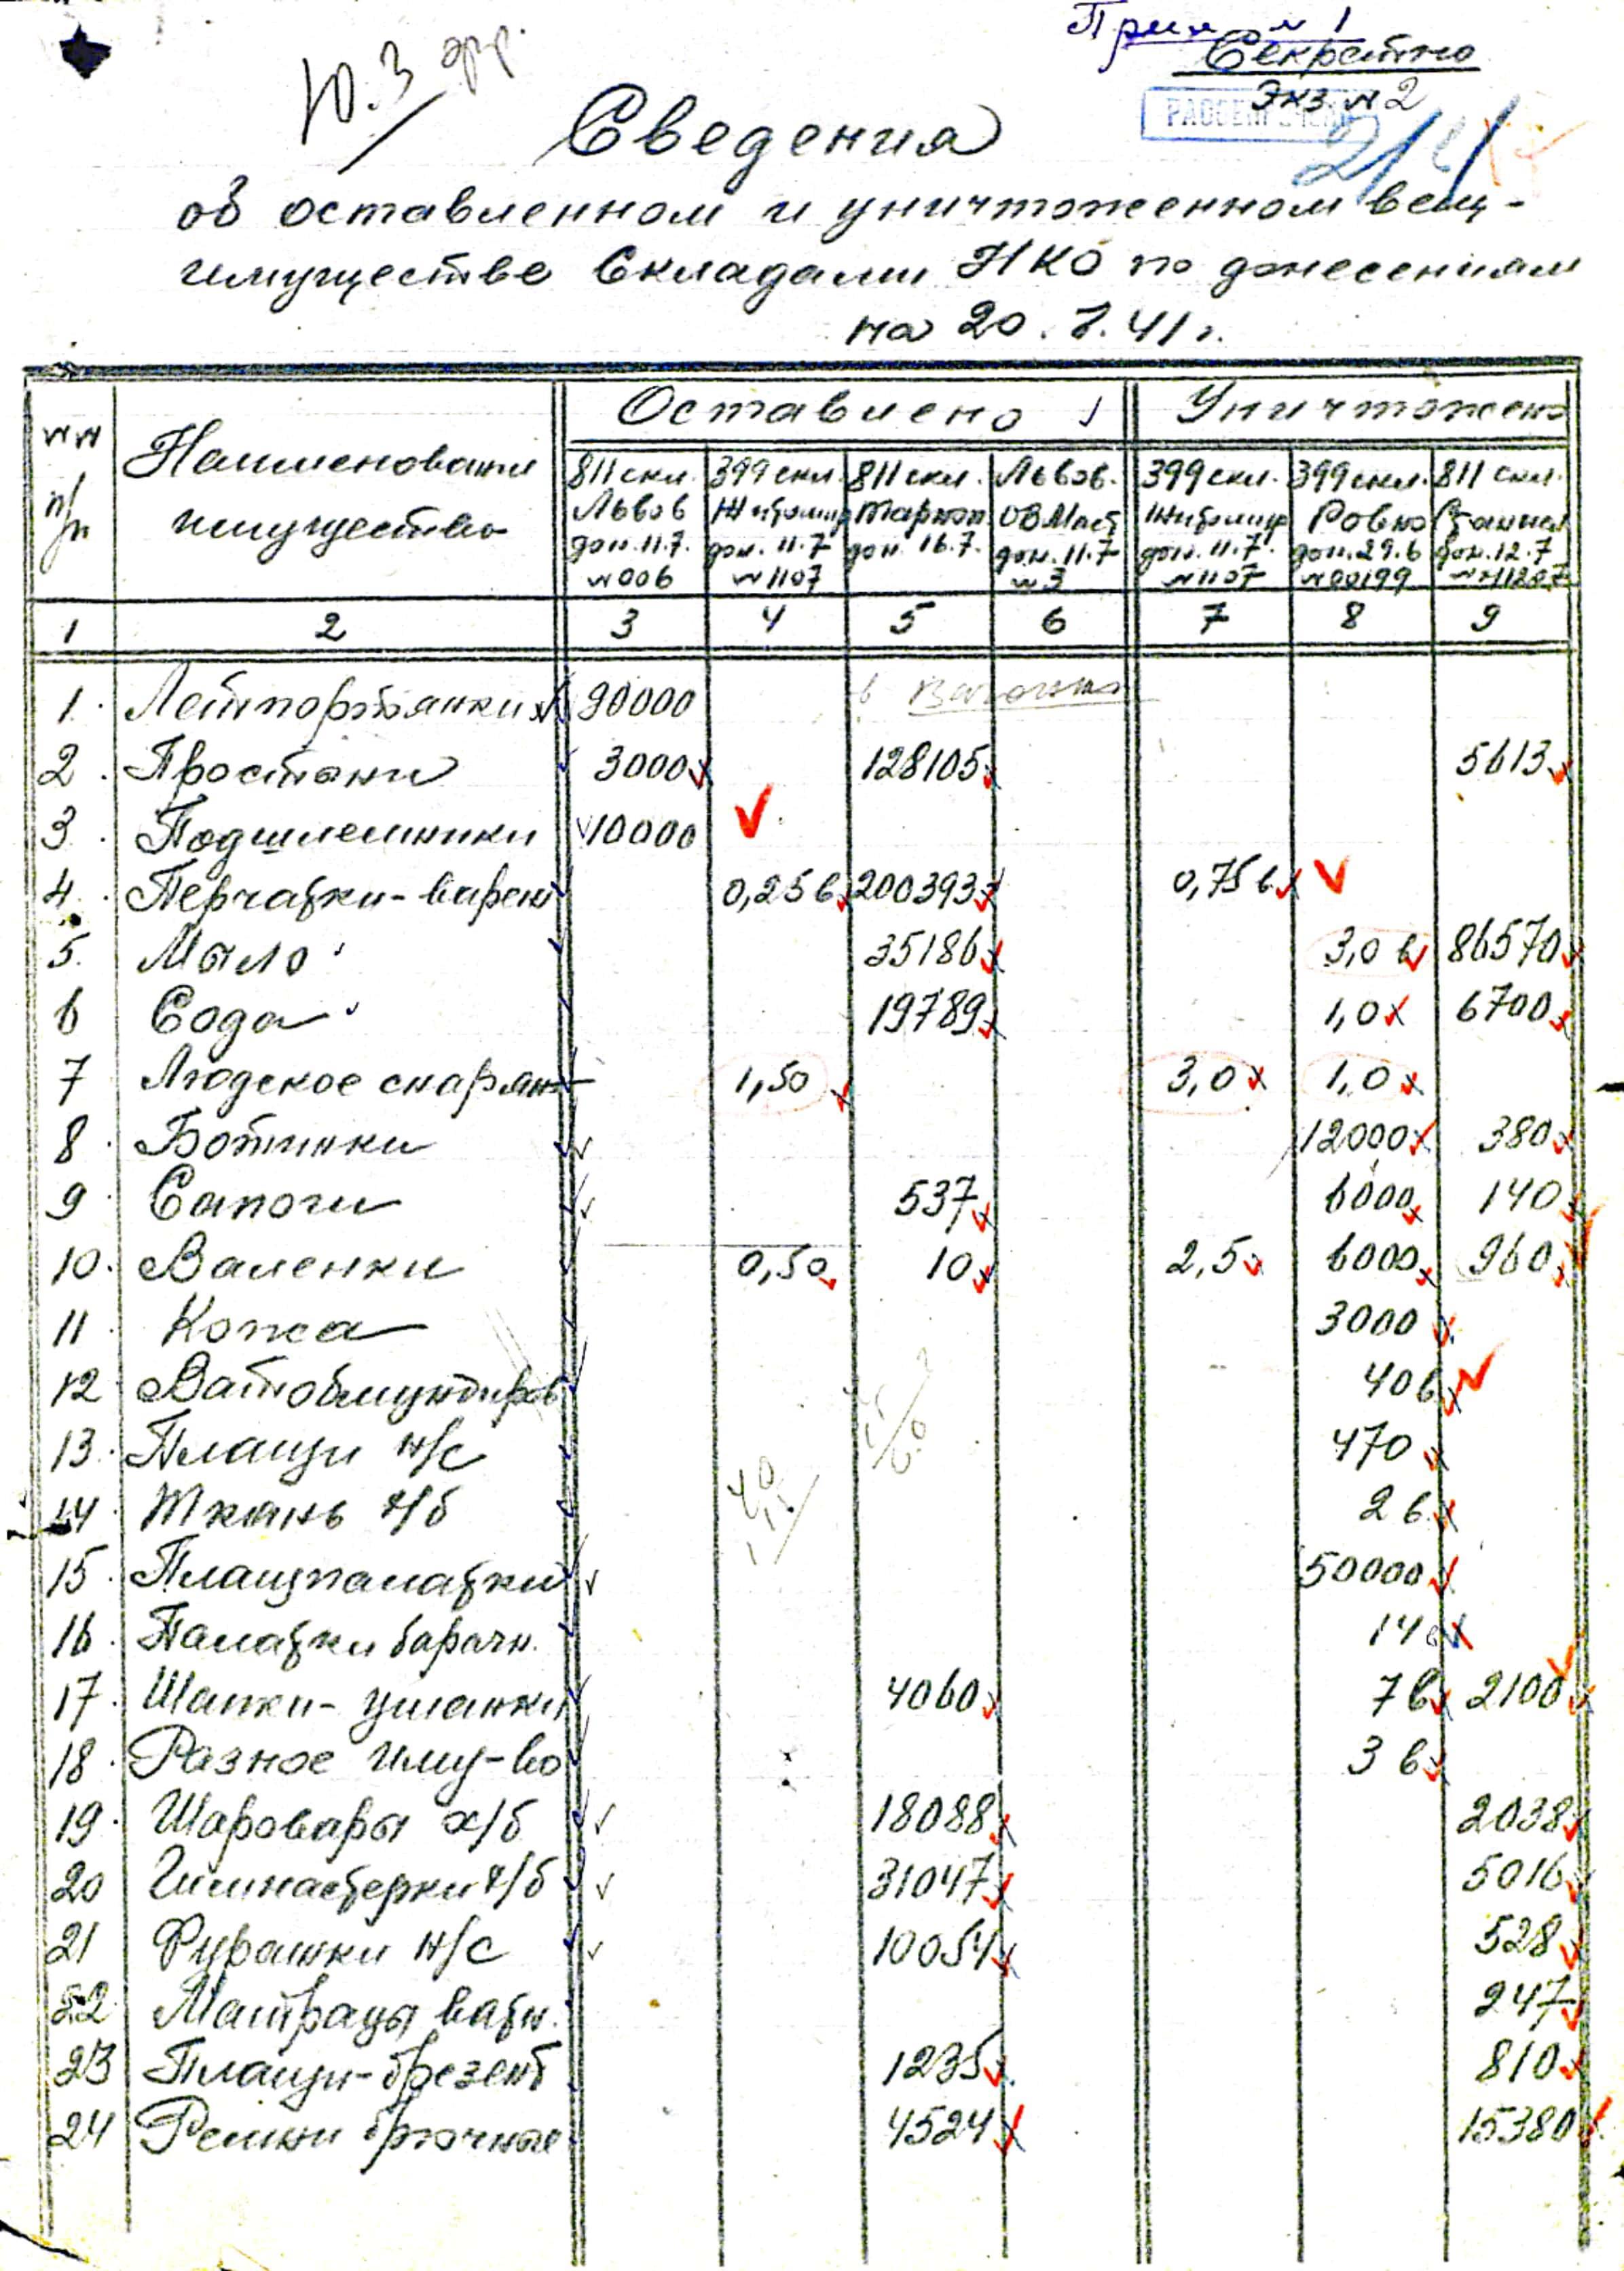 Ю.З фр.
Прил № 1
Секретно
Экз. № 2
РАССЕКРЕЧЕНО
Сведения
об оставленном и уничтоженном вещ-
имуществе складами НКО по донесениям
на 20.7.41 г.
№№ п/п
Наименование имущества
Оставлено
Уничтожено
811 скл. Львов дон. 11.7. №006
399 скл. Житомир дон. 11.7 №1107
811 скл. Тарноп дон. 16.7.
Львов. ОВМаст дон. 11.7 №3
399 скл. Житомир дон. 11.7. №1107
399 скл. Ровно дон. 29.6 №00199
811 скл. дон. 12.7
1 2 3 4 5 6 7 8 9
в вагонах
1. Летпортянки 90000
2. Простыни 3000 128105 5613
3. Подшлемники 10000
4. Перчатки-вареж 0,25 в 200393 0,75 в
5. Мыло 35186 3,0 в 86570
6 Сода 19789 1,0 6700
7 Людское снаряж 1,50 3,0 1,0
8. Ботинки 12000 380
9. Сапоги 537 6000 140
10. Валенки 0,50 10 2,5 6000 960
11. Кожа 3000
12. Ватобмундиров 40 в
13. Плащи н/с 470
14. Ткань х/б 2 в
15. Плащпалатки 50000
16. Палатки барачн. 14 в
17. Шапки-ушанки 4060 7 в 2100
18. Разное иму-во 3 в
19. Шаровары х/б 18088 2038
20 Гимнастерки х/б 31047 5016
21 Фуражки н/с 10054 528
22 Матрацы ватн. 247
23 Плащи-брезент 1235 810
24 Ремни брючные 4524 15380